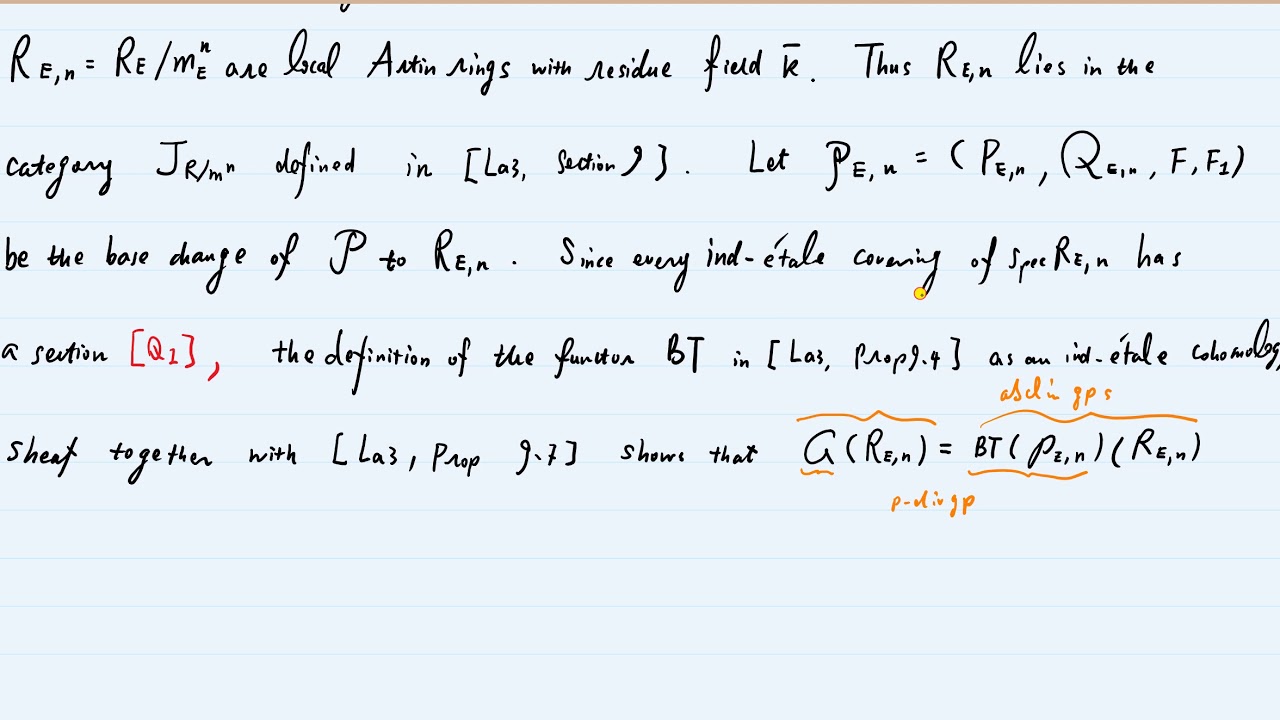 R_{E,n} = R_E/m_E^n are local Artin rings with residue field k̄. Thus R_{E,n} lies in the
category J_{R/m^n} defined in [La3, Section 9]. Let 𝒫_{E,n} = (P_{E,n}, Q_{E,n}, F, F_1)
be the base change of 𝒫 to R_{E,n}. Since every ind-étale covering of spec R_{E,n} has
a section [Q1], the definition of the functor BT in [La3, Prop 9.4] as an ind-étale cohomolog
abelian gps
sheaf together with [La3, Prop 9.7] shows that G(R_{E,n}) = BT(𝒫_{E,n})(R_{E,n})
p-div gp